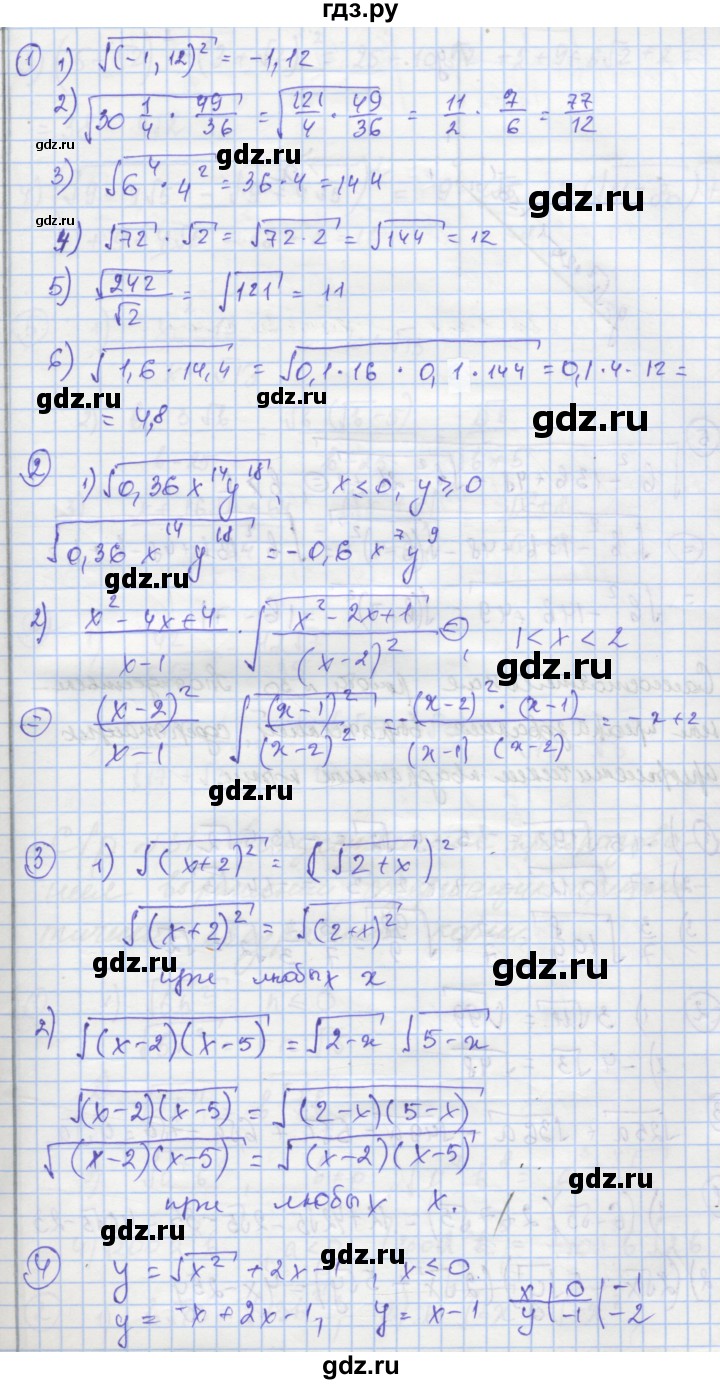 гдз.ру
① 1) √(-1,12)² = -1,12
2) √30 1/4 · 49/36 = √121/4 · 49/36 = 11/2 · 7/6 = 77/12
gdz.ru
gdz.ru
3) √6⁴ · 4² = 36 · 4 = 144
gdz.ru
4) √72 · √2 = √72 · 2 = √144 = 12
gdz.ru
5) √242/√2 = √121 = 11
6) √1,6 · 14,4 = √0,1 · 16 · 0,1 · 144 = 0,1 · 4 · 12 =
gdz.ru
gdz.ru
gdz.ru
= 4,8
② 1) √0,36x¹⁴y¹⁸, x ≤ 0, y ≥ 0
gdz.ru
√0,36x¹⁴y¹⁸ = -0,6x⁷y⁹
gdz.ru
2) x² - 4x + 4/x - 1 · √x² - 2x + 1/(x - 2)² =, 1 < x < 2
gdz.ru
= (x - 2)²/x - 1 √(x - 1)²/(x - 2)² = -(x - 2)² · (x - 1)/(x - 1) (x - 2) = -x + 2
gdz.ru
③ 1) √(x + 2)² = (√2 + x)²
√(x + 2)² = √(2 + x)²
gdz.ru
gdz.ru
при любых x
2) √(x - 2)(x - 5) = √2 - x √5 - x
gdz.ru
√(x - 2)(x - 5) = √(2 - x)(5 - x)
√(x - 2)(x - 5) = √(x - 2)(x - 5)
gdz.ru
при любых x.
gdz.ru
④ y = √x² + 2x - 1, x ≤ 0
gdz.ru
y = -x + 2x - 1, y = x - 1 x | 0 | -1
y | -1 | -2
gdz.ru